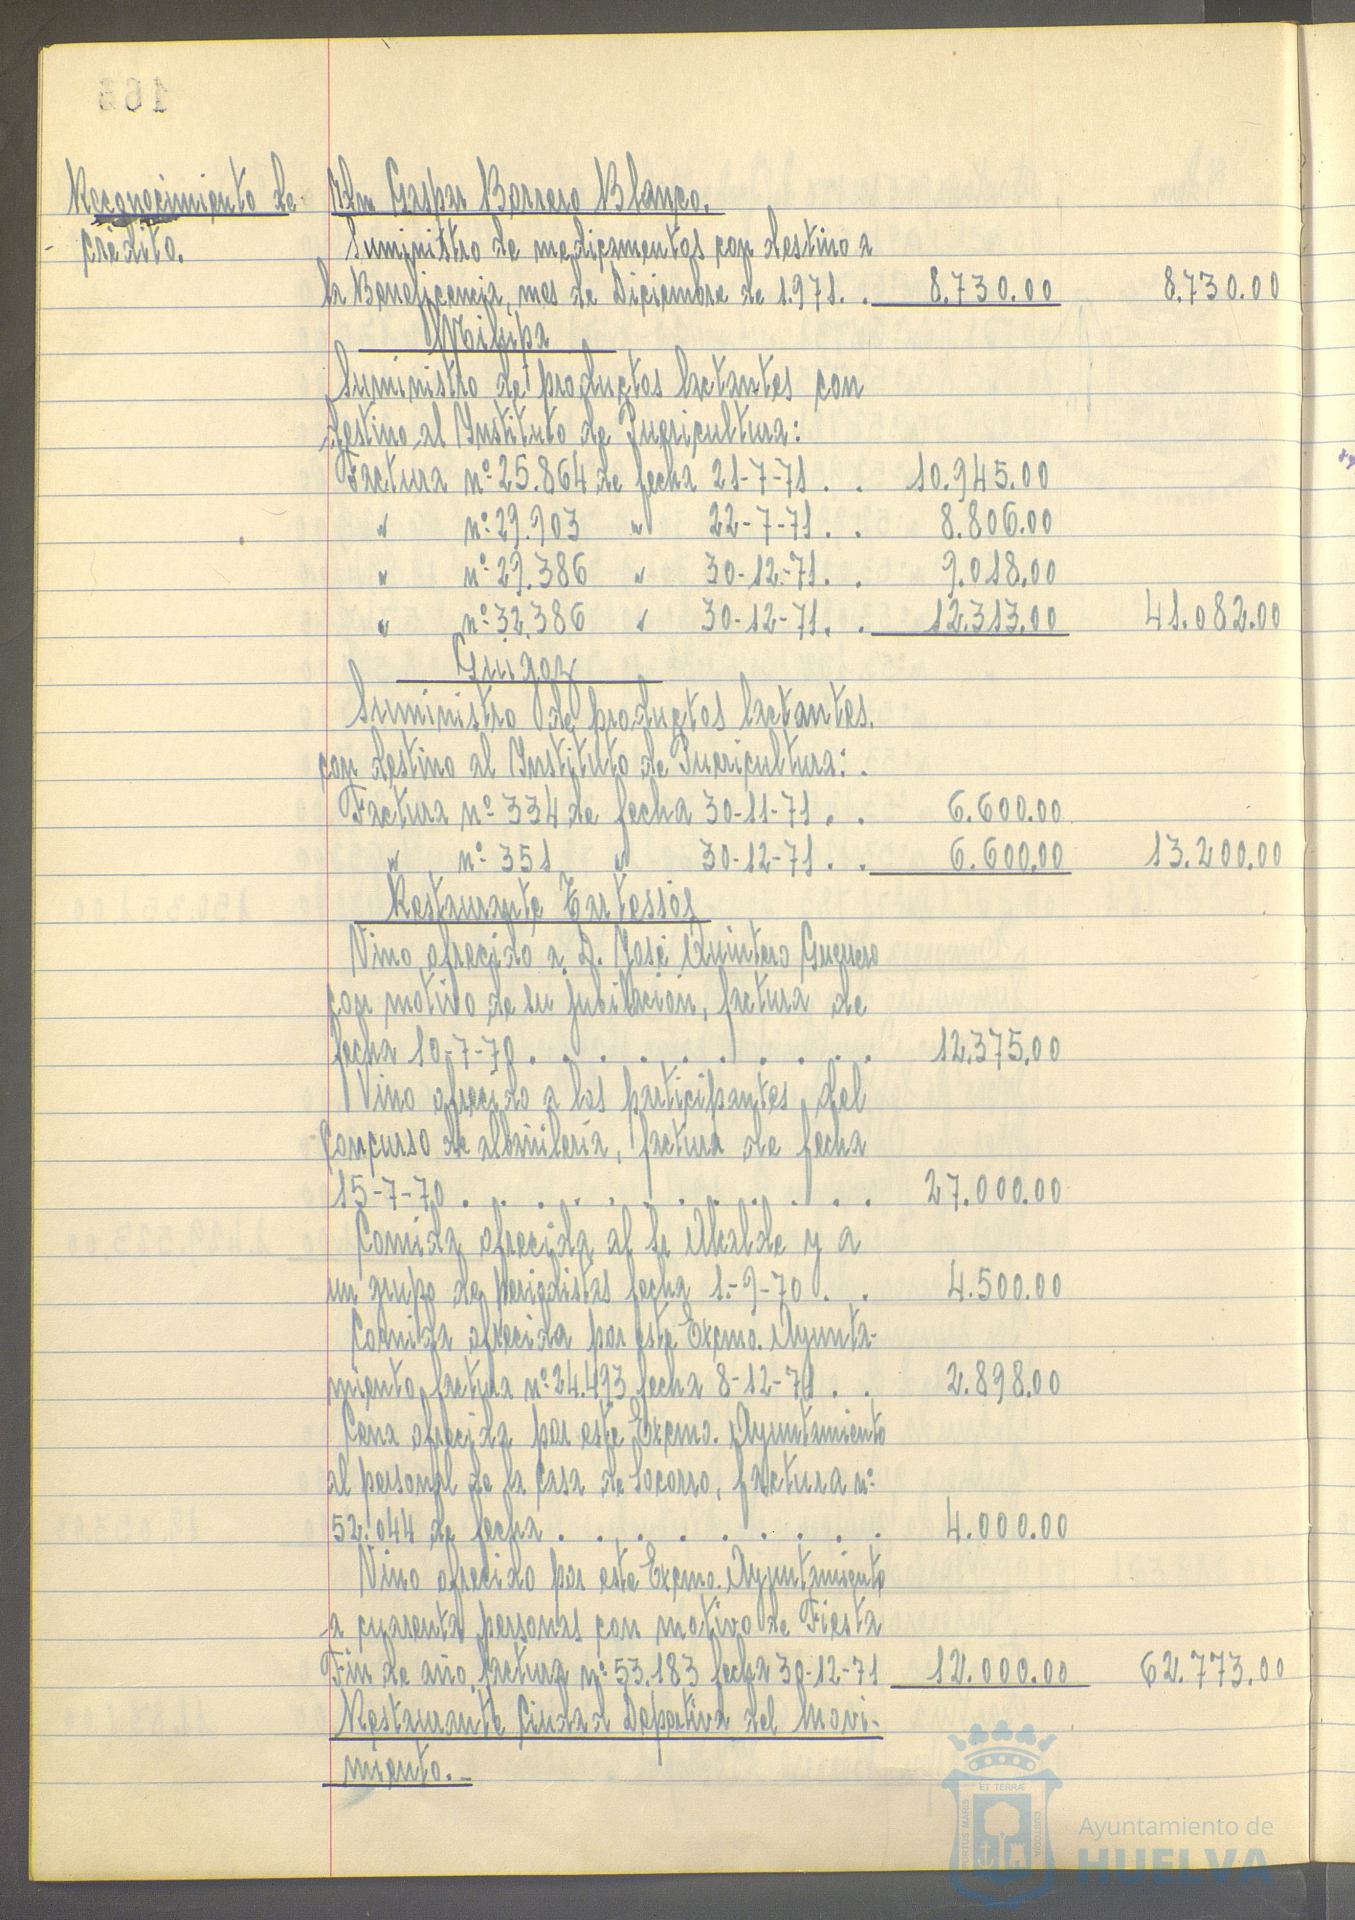 Reconocimiento de
crédito.
Gaspar Borrero Blanco.
Suministro de medicamentos con destino a
la Beneficencia, mes de Diciembre de 1.971. . 8.730.00 8.730.00
Milupa
Suministro de productos lactantes con
destino al Instituto de Puericultura:
Factura nº 25.864 de fecha 21-7-71 . . 10.945.00
" nº 29.903 " 22-7-71 . . 8.806.00
" nº 29.386 " 30-12-71. . 9.018.00
" nº 32.386 " 30-12-71. . 12.313.00 41.082.00
Guigoz
Suministro de productos lactantes.
con destino al Instituto de Puericultura: .
Factura nº 334 de fecha 30-11-71 . . 6.600.00
" nº 351 " 30-12-71 . . 6.600.00 13.200.00
Restaurante Tartessos
Vino ofrecido a D. José Quintero Guerrero
con motivo de su jubilación, factura de
fecha 10-7-70 . . . . . . . . 12.375.00
Vino ofrecido a los participantes del
Concurso de albañilería, factura de fecha
15-7-70 . . . . . . . . . . 27.000.00
Comida ofrecida al Sr Alcalde y a
un grupo de periodistas fecha 1.-9-70 . . 4.500.00
Comida ofrecida por este Excmo. Ayunta-
miento, factura nº 24.493 fecha 8-12-71 . . 2.898.00
Cena ofrecida por este Excmo. Ayuntamiento
al personal de la Casa de Socorro, factura nº
52.044 de fecha . . . . . . . . 4.000.00
Vino ofrecido por este Excmo. Ayuntamiento
a cuarenta personas con motivo de Fiesta
Fin de año, factura nº 53.183 fecha 30-12-71 12.000.00 62.773.00
Restaurante Ciudad Deportiva del Movi-
miento.-
PORTUS MARIS ET TERRÆ CUSTODIA
Ayuntamiento de
HUELVA